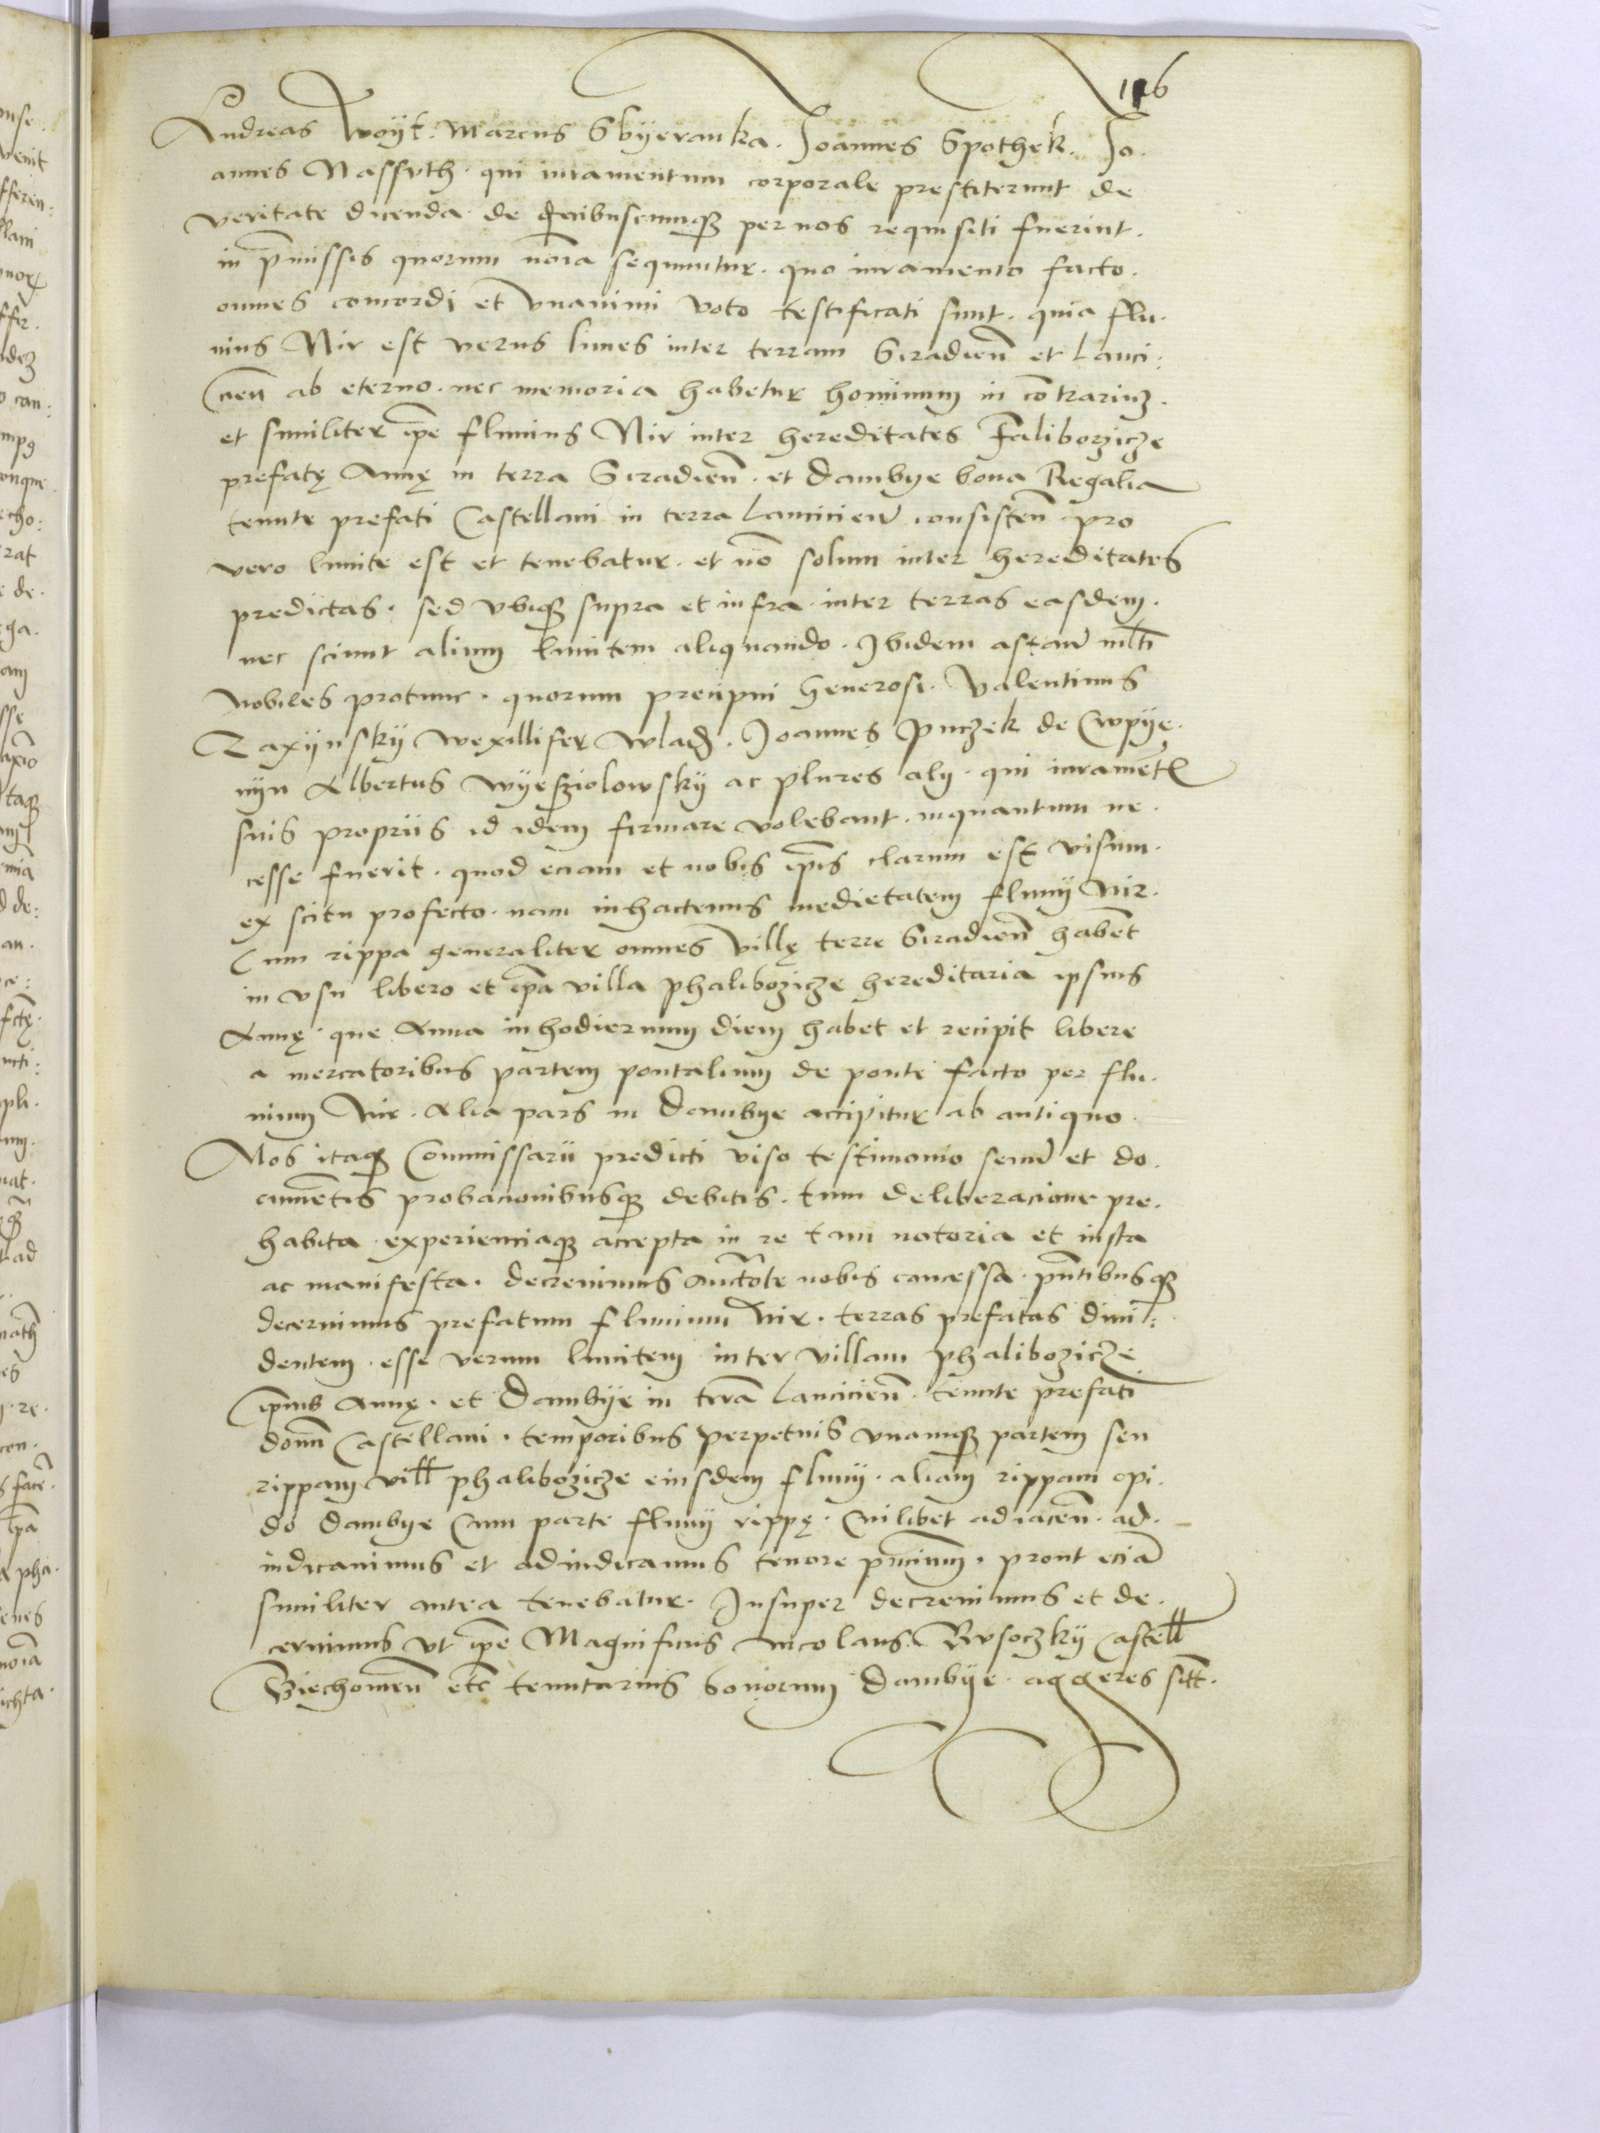 116
Andreas Woyt. Marcus Sbyeranka. Joannes Spothek. Jo.
annes Nassuth. qui iuramentum corporale prestiterunt de
veritate dicenda de quibuscumq3 per nos requisiti fuerint.
in p̄missis quorum noīa sequuntur. quo iuramento facto.
omnes concordi et vnanimi voto testificati sunt. quia flu.
uius Nir est verus limes inter terram Siradieñ et Lanci:
cieñ ab eterno. nec memoria habetur hominum in cōtrariuz.
et similiter ip̄e fluuius Nir inter hereditates Faliborzicze
prefatę Annę in terra Siradieñ. et Dambye bona Regalia
tenute prefati Castellani in terra Lancicieñ consisteñ pro
vero limite est et tenebatur. et nō solum inter hereditates
predictas. sed vbiq3 supra et infra inter terras easdem.
nec sciunt alium limitem aliquando. Ibidem astañ mlti
nobiles protunc. quorum precipui Generosi. Valentinus
Raxijnsky wexillifer wlad. Joannes Puczek de Cwpye.
nyn Albertus Wyesziolowsky ac plures alij. qui iuramēt
suis propriis id idem firmare volebant. inquantum ne.
cesse fuerit. quod eciam et nobis ip̄is clarum est visum.
ex scitu profecto. nam inhactenus medietatem fluuij Nir.
Cum rippa generaliter omnes villę terre Siradieñ habēt
in vsu libero et ip̄a villa phalibozicze hereditaria ipsius
Annę. que Anna inhodiernum diem habet et recipit libere
a mercatoribus partem pontalium de ponte facto per flu.
uium Nir. Alia pars in Dambye accipitur ab antiquo.
Nos itaq3 Commissarii predicti viso testimonio señ et do.
cumētis probacionibusq3 debitis. tum deliberacione pre.
habita experienciaq3 accepta in re tam notoria et iusta
ac manifesta. decreuimus auctōte nobis concessa. pn̄tibusq3
decernimus prefatum fluuium Nir. terras prefatas diui:
dentem. esse verum limitem inter villam phalibozicze
ip̄ius Annę. et Dambye in terrā Lancicieñ. tenute prefati
domī Castellani. temporibus perpetuis vnamq3 partem seu
rippam vill phalibozicze eiusdem fluuij. aliam rippam opi.
do Dambye Cum parte fluuij rippę. Cuilibet adiaceñ. ad.
iudicauimus et adiudicamus tenore pn̄cium. prout eciā
similiter antea tenebatur. Insuper decreuimus et de.
cernimus vt ip̄e Magnificus Nicolaus Rusoczky Castell
Biechouieñ etc tenutarius bonorum Dambye. aggeres sitt.